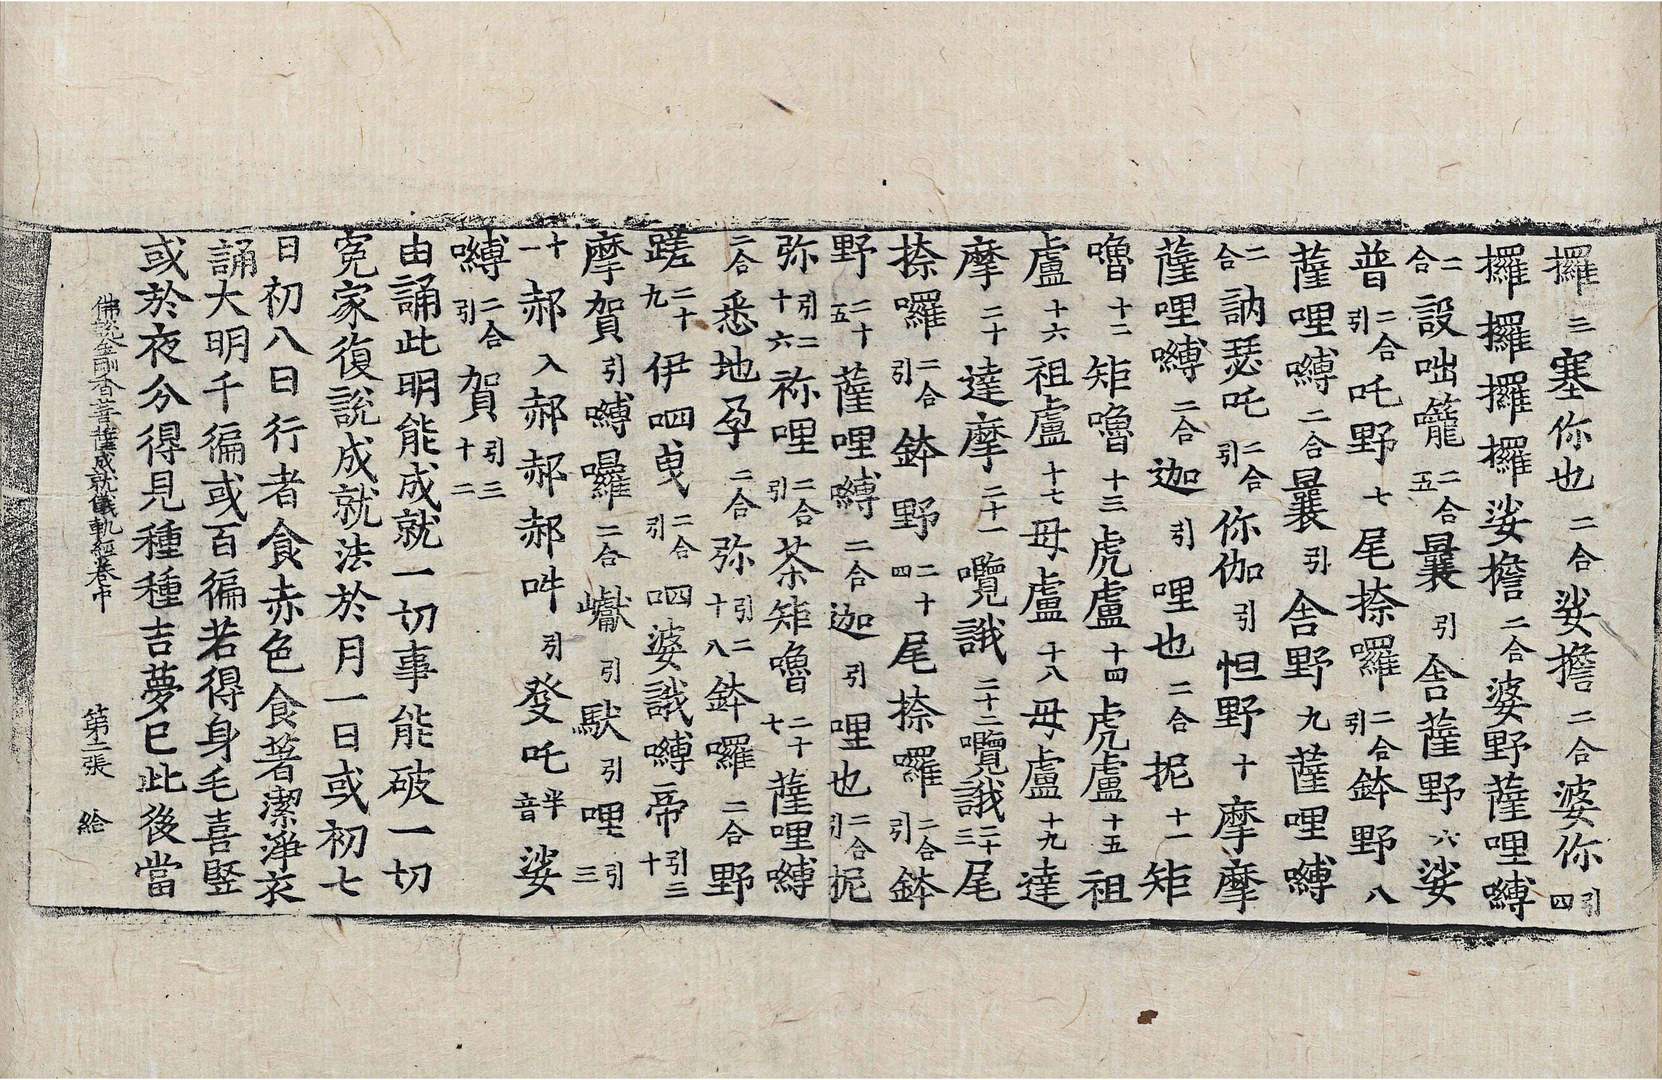 攞三塞你也二合娑擔二合婆你引四
攞攞攞攞娑擔二合婆野薩哩嚩
二合設咄嚨二合五曩引舍薩野六娑
普二合引吒野七尾捺囉二合引鉢野八
薩哩嚩二合曩引舍野九薩哩嚩
二合訥瑟吒二合引你伽引怛野十摩摩
薩哩嚩二合迦引哩也二合抳十一矩
嚕十二矩嚕十三虎盧十四虎盧十五祖
盧十六祖盧十七母盧十八母盧十九達
摩二十達摩二十一囕誐二十二囕誐二十三尾
捺囉二合引鉢野二十四尾捺囉二合引鉢
野二十五薩哩嚩二合迦引哩也二合引抳
弥引十六二祢哩二合引茶矩嚕二十七薩哩嚩
二合悉地孕二合弥引十八二鉢囉二合野
蹉二十九伊呬曳二合引呬婆誐嚩帝引三十
摩賀引嚩囉二合巘引馱引哩引三
十一郝入郝郝郝吽引癹吒半音娑
嚩二合引賀引三十二
由誦此明能成就一切事能破一切
寃家復說成就法於月一日或初七
日初八日行者食赤色食著潔淨衣
誦大明千徧或百徧若得身毛喜竪
或於夜分得見種種吉夢已此後當
佛說金剛香菩薩成就儀軌經卷中　第二張　給